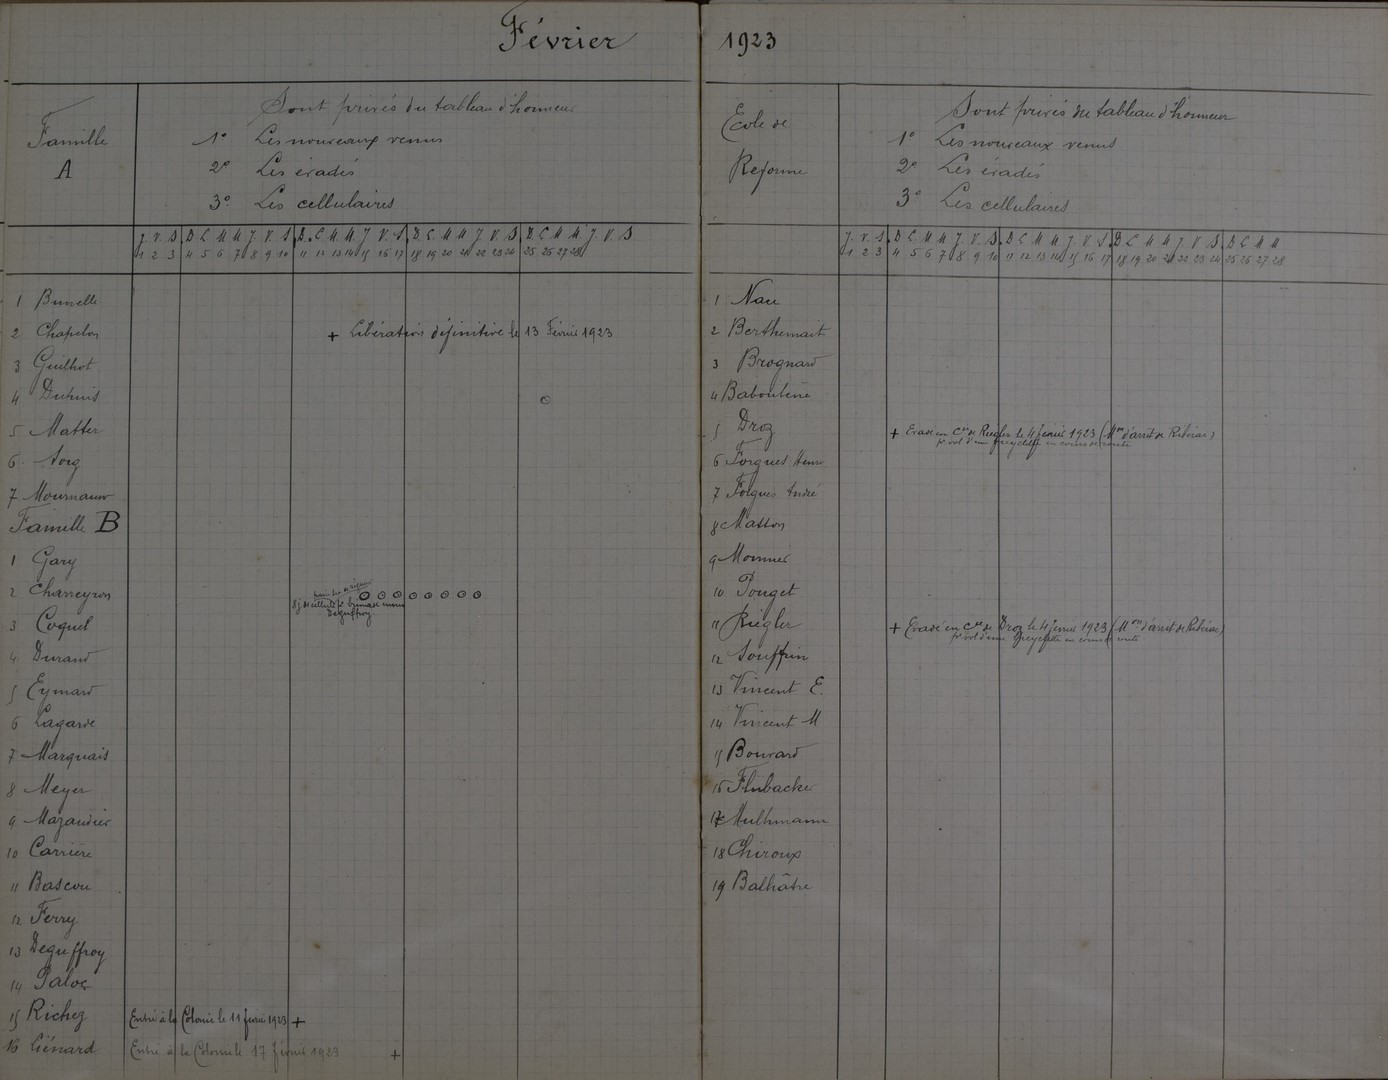 Février 1923
Famille
A
Sont privés du tableau d'honneur
1° Les nouveaux venus
2° Les évadés
3° Les cellulaires
J. V. S D L M M J V. S D. L M M J V. S D. L M M J V. S D. L M M J. V. S
1 2 3 4 5 6 7 8 9 10 11 12 13 14 15 16 17 18 19 20 21 22 23 24 25 26 27 28
1 Brunelle
2 Chapelon + Libération définitive le 13 Février 1923
3 Guilhot
4 Duhuis
5 Matter
6. Sorg
7 Mournaux
Famille B
1 Gary
2 Charreyron
8 j de cellule pr brimade envers
Deguffroy
3 Coquel
4 Durand
5 Eymard
6 Lagarde
7 Marquais
8 Meyer
9 Mazaudier
10 Carrière
11 Bascou
12 Ferry
13 Deguffroy
14 Paloc
15 Richez Entré à la Colonie le 11 février 1923 +
16 Liénard Entré à la Colonie le 17 février 1923 +
Ecole de
Reforme
Sont privés du tableau d'honneur
1° Les nouveaux venus
2° Les évadés
3° Les cellulaires
J. V. S D L M M J V. S D L M M J. V. S D L M M J V S D L M M
1 2 3 4 5 6 7 8 9 10 11 12 13 14 15 16 17 18 19 20 21 22 23 24 25 26 27 28
1 Nau
2 Berthemait
3 Brognard
4 Baboulène
5 Droz + Evadé en Cie de Riegler le 4 février 1923 (Mon d'arrêt de Ribérac)
pr vol d'une bicyclette en cours de route
6 Forgues Henri
7 Forgues André
8 Masson
9 Monnier
10 Pouget
11 Riegler + Evadé en Cie de Droz le 4 février 1923 (Mon d'arrêt de Ribérac)
pr vol d'une bicyclette en cours de route
12 Souffrin
13 Vincent E.
14 Vincent M
15 Bouvard
16 Flubacker
17 Mulhmann
18 Chiroux
19 Balhâtre